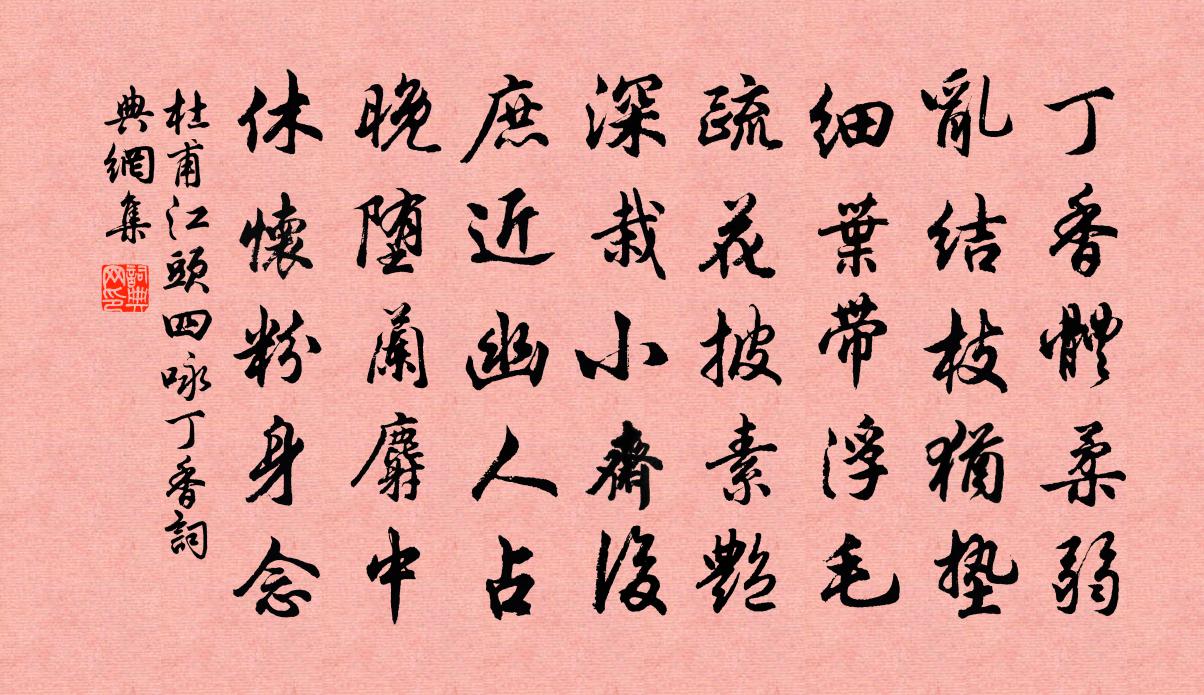 丁香體柔弱
亂結枝猶墊
細葉帶浮毛
疏花披素艷
深栽小齋後
庶近幽人占
晚墮蘭麝中
休懷粉身念
杜甫江頭四咏丁香詞
典網集
詞典网印